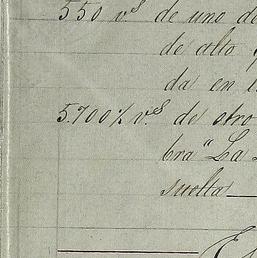 550 vs de uno de
de alto y
da en l
5.700% vs. de otro
bra "La
suelta